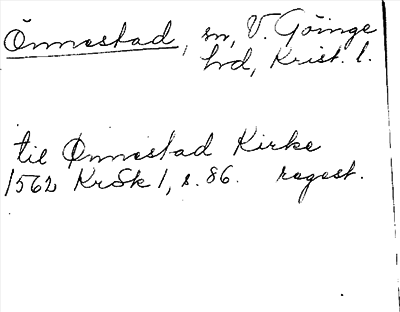 Önnestad, sn, V. Göinge
hd, Krist. l.
til Ønnestad Kirke
1562 KrSk 1, s. 86. regest.